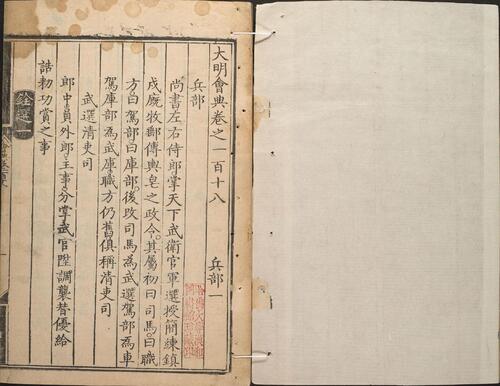 大明會典卷之一百十八　兵部一
兵部
尚書左右侍郎掌天下武衛官軍選授簡練鎮
戍廐牧郵傳輿皂之政令其屬初曰司馬曰職
方曰駕部曰庫部後改司馬為武選駕部為車
駕庫部為武庫職方仍舊俱稱清吏司
武選清吏司
郎中員外郎主事分掌武官陞調襲替優給
誥勑功賞之事
銓選一